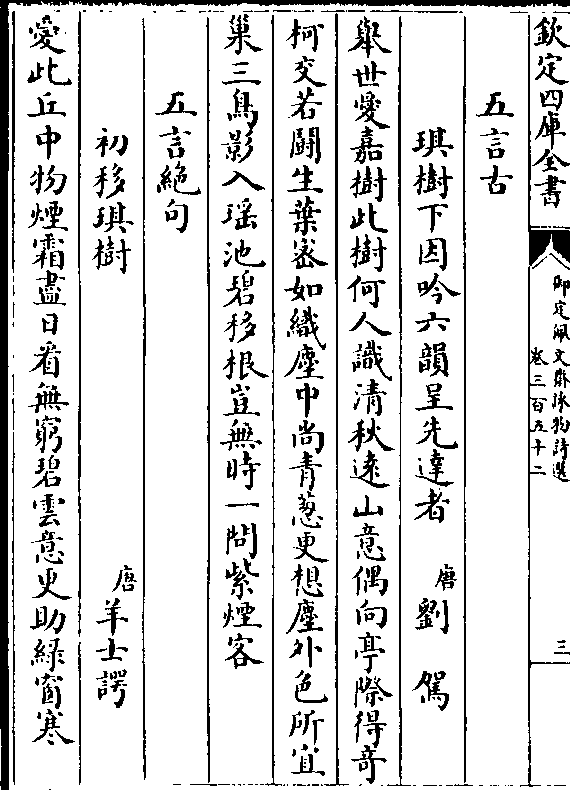 欽定四庫全書
御定佩文齋詠物詩選
卷三百五十二
三
五言古
琪樹下因吟六韻呈先達者 唐 劉駕
舉世愛嘉樹此樹何人識清秋遠山意偶向亭際得奇
柯交若鬭生葉密如織塵中尚青葱更想塵外色所宜
巢三鳥影入瑶池碧移根豈無時一問紫煙客
五言絶句
初移琪樹 唐 羊士諤
愛此丘中物煙霜盡日看無窮碧雲意更助緑窗寒